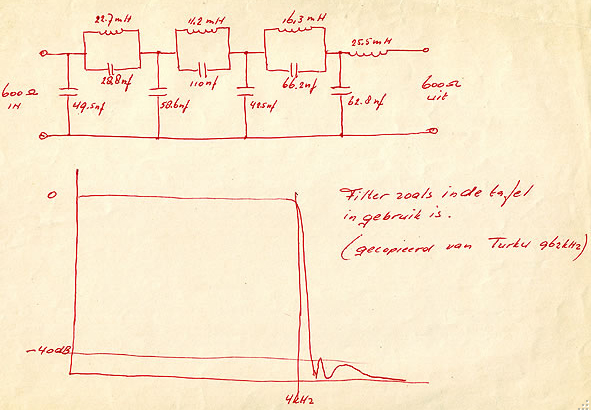 22.7mH
11.2mH
16.3mH
25.5mH
28.8nf
110nf
66.2nf
600Ω
IN
49.5nf
58.6nf
425nf
62.8nf
600Ω
uit
0
-40dB
4kHz
Filter zoals in de tafel
in gebruik is.
(gecopieerd van Turku 962kHz)